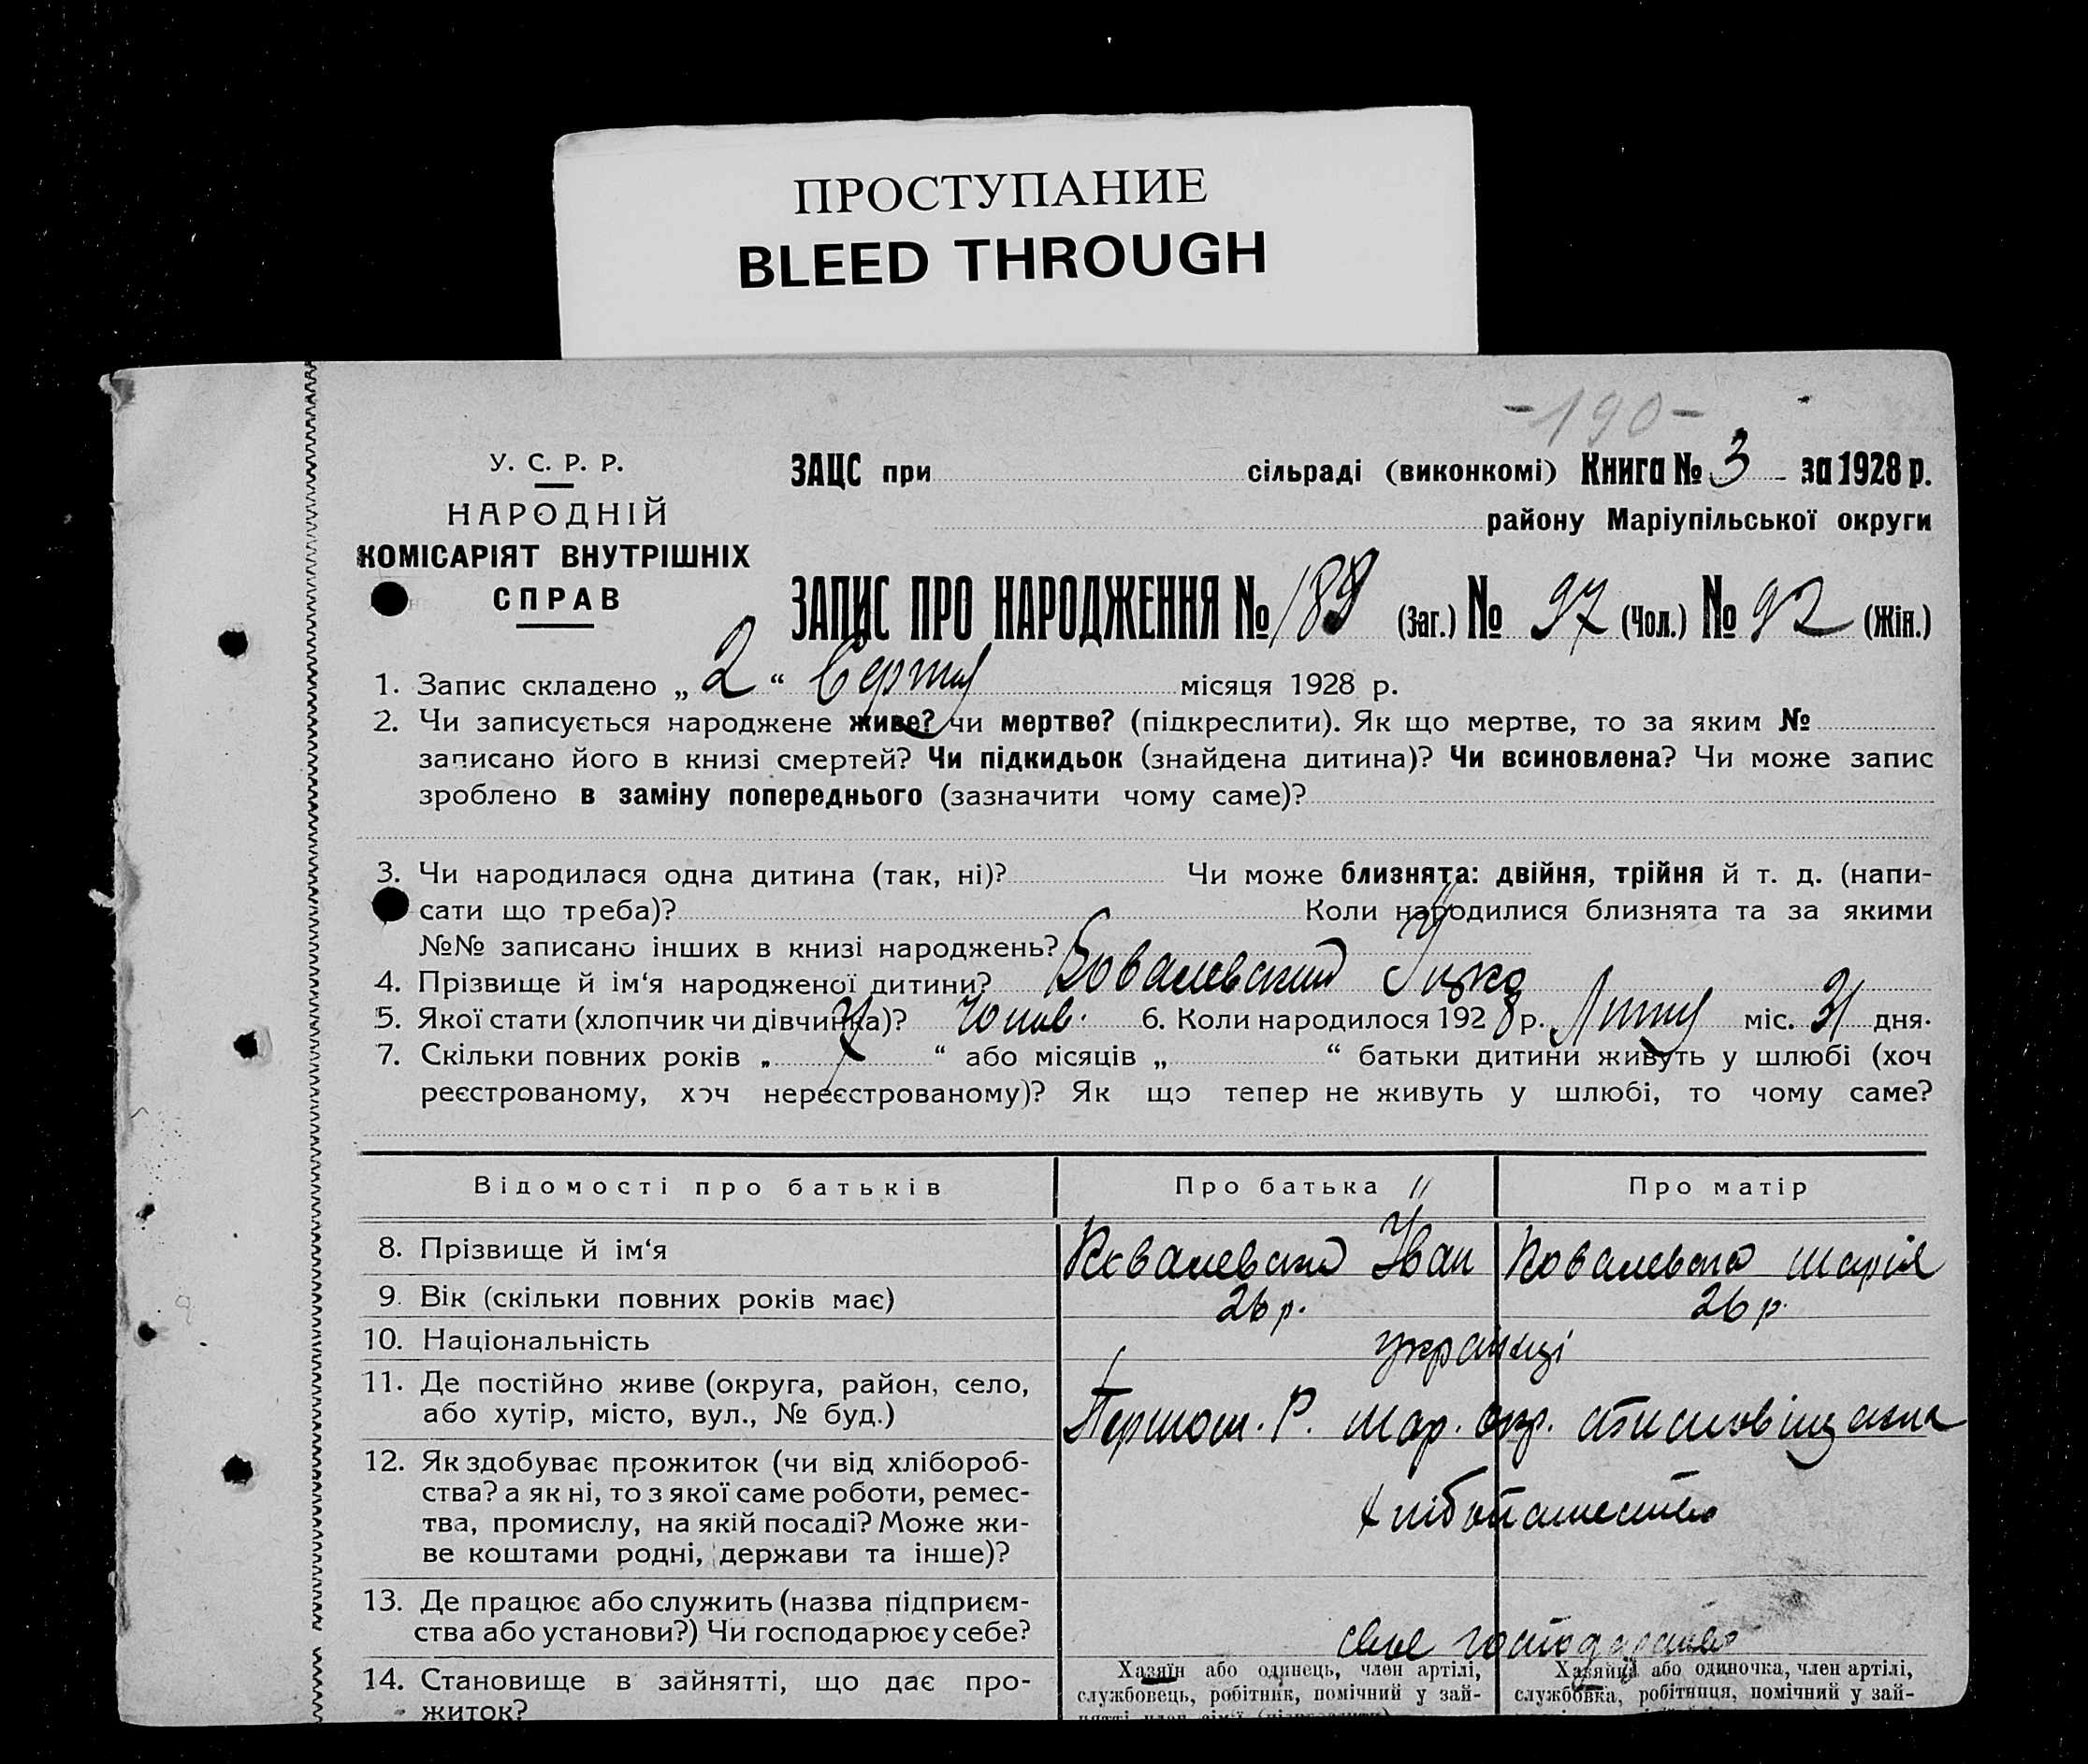 ПРОСТУПАНИЕ
BLEED THROUGH
-190-
У. С. Р. Р.
НАРОДНІЙ
КОМІСАРІЯТ ВНУТРІШНІХ
СПРАВ
ЗАЦС при сільраді (виконкомі) Книга № 3 за 1928 р.
району Маріупільської округи
ЗАПИС ПРО НАРОДЖЕННЯ № 189 (Заг.) № 97 (Чол.) № 92 (Жін.)
1. Запис складено „ 2 “ Серпня місяця 1928 р.
2. Чи записується народжене живе? чи мертве? (підкреслити). Як що мертве, то за яким №
записано його в книзі смертей? Чи підкидьок (знайдена дитина)? Чи всиновлена? Чи може запис
зроблено в заміну попереднього (зазначити чому саме)?
3. Чи народилася одна дитина (так, ні)? Чи може близнята: двійня, трійня й т. д. (напи-
сати що треба)? Коли народилися близнята та за якими
№№ записано інших в книзі народжень?
4. Прізвище й ім‘я народженої дитини? Ковалевский
5. Якої стати (хлопчик чи дівчинка)? Чолов. 6. Коли народилося 1928 р. Липня міс. 31 дня.
7. Скільки повних років „ “ або місяців „ “ батьки дитини живуть у шлюбі (хоч
реєстрованому, хоч нереєстрованому)? Як що тепер не живуть у шлюбі, то чому саме?
Відомості про батьків Про батька Про матір
8. Прізвище й ім‘я Ковалевский Іван Ковалевська Марія
9. Вік (скільки повних років має) 26 р. 26 р.
10. Національність українці
11. Де постійно живе (округа, район, село,
або хутір, місто, вул., № буд.) Першот. Р. Мар. окр.
12. Як здобуває прожиток (чи від хлібороб-
ства? а як ні, то з якої саме роботи, ремес-
тва, промислу, на якій посаді? Може жи-
ве коштами родні, держави та інше)?
13. Де працює або служить (назва підприєм-
ства або установи?) Чи господарює у себе? своє господарство
14. Становище в зайнятті, що дає про-
житок?
Хазяїн або одинець, член артілі,
службовець, робітник, помічний у зай-
Хазяйка або одиночка, член артілі,
службовка, робітниця, помічний у зай-